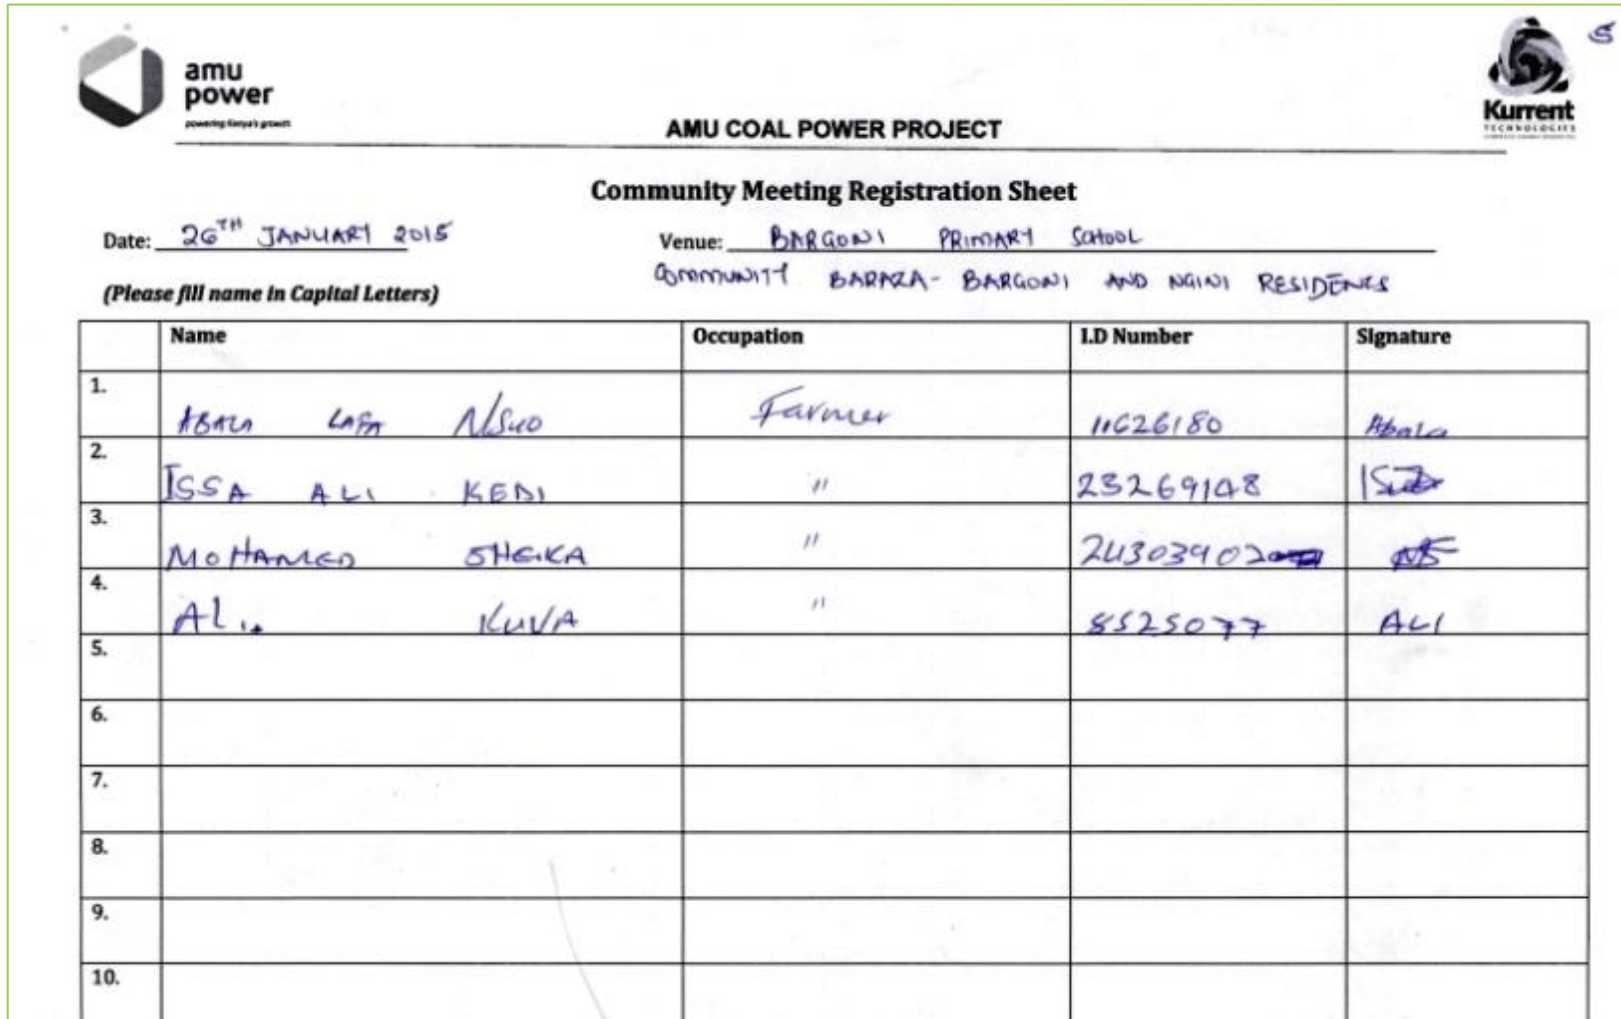 5
amu
power
powering Kenya's growth
Kurrent
TECHNOLOGIES
AMU COAL POWER PROJECT
Community Meeting Registration Sheet
Date: 26TH JANUARY 2015 Venue: BARGONI PRIMARY SCHOOL
COMMUNITY BARAZA- BARGONI AND NGINI RESIDENCS
(Please fill name in Capital Letters)
Name Occupation I.D Number Signature
1. ABALA Farmer 11626180 Abala
2. ISSA ALI KEDI " 23269148
3. MOHAMED SHEIKA " 24303902
4. Ali KUVA " 8525077 ALI
5.
6.
7.
8.
9.
10.